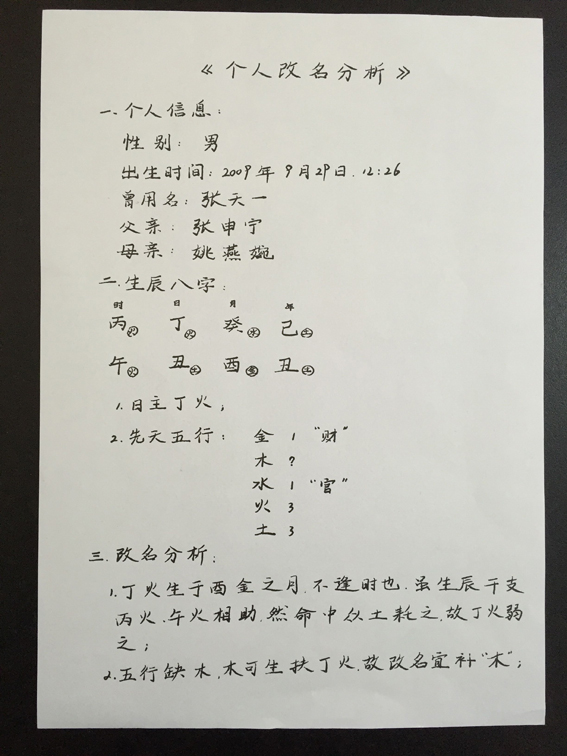 《个人改名分析》
一.个人信息：
性别：男
出生时间：2009年9月29日.12:26
曾用名：张天一
父亲：张申宁
母亲：姚燕婉
二.生辰八字：
时 日 月 年
丙火 丁火 癸水 己土
午火 丑土 酉金 丑土
1.日主丁火；
2.先天五行：金 1 "财"
木 ?
水 1 "官"
火 3
土 3
三.改名分析：
1.丁火生于酉金之月.不逢时也.虽生辰干支
丙火.午火相助.然命中以土耗之.故丁火弱
之；
2.五行缺木.木可生扶丁火.故改名宜补"木"；